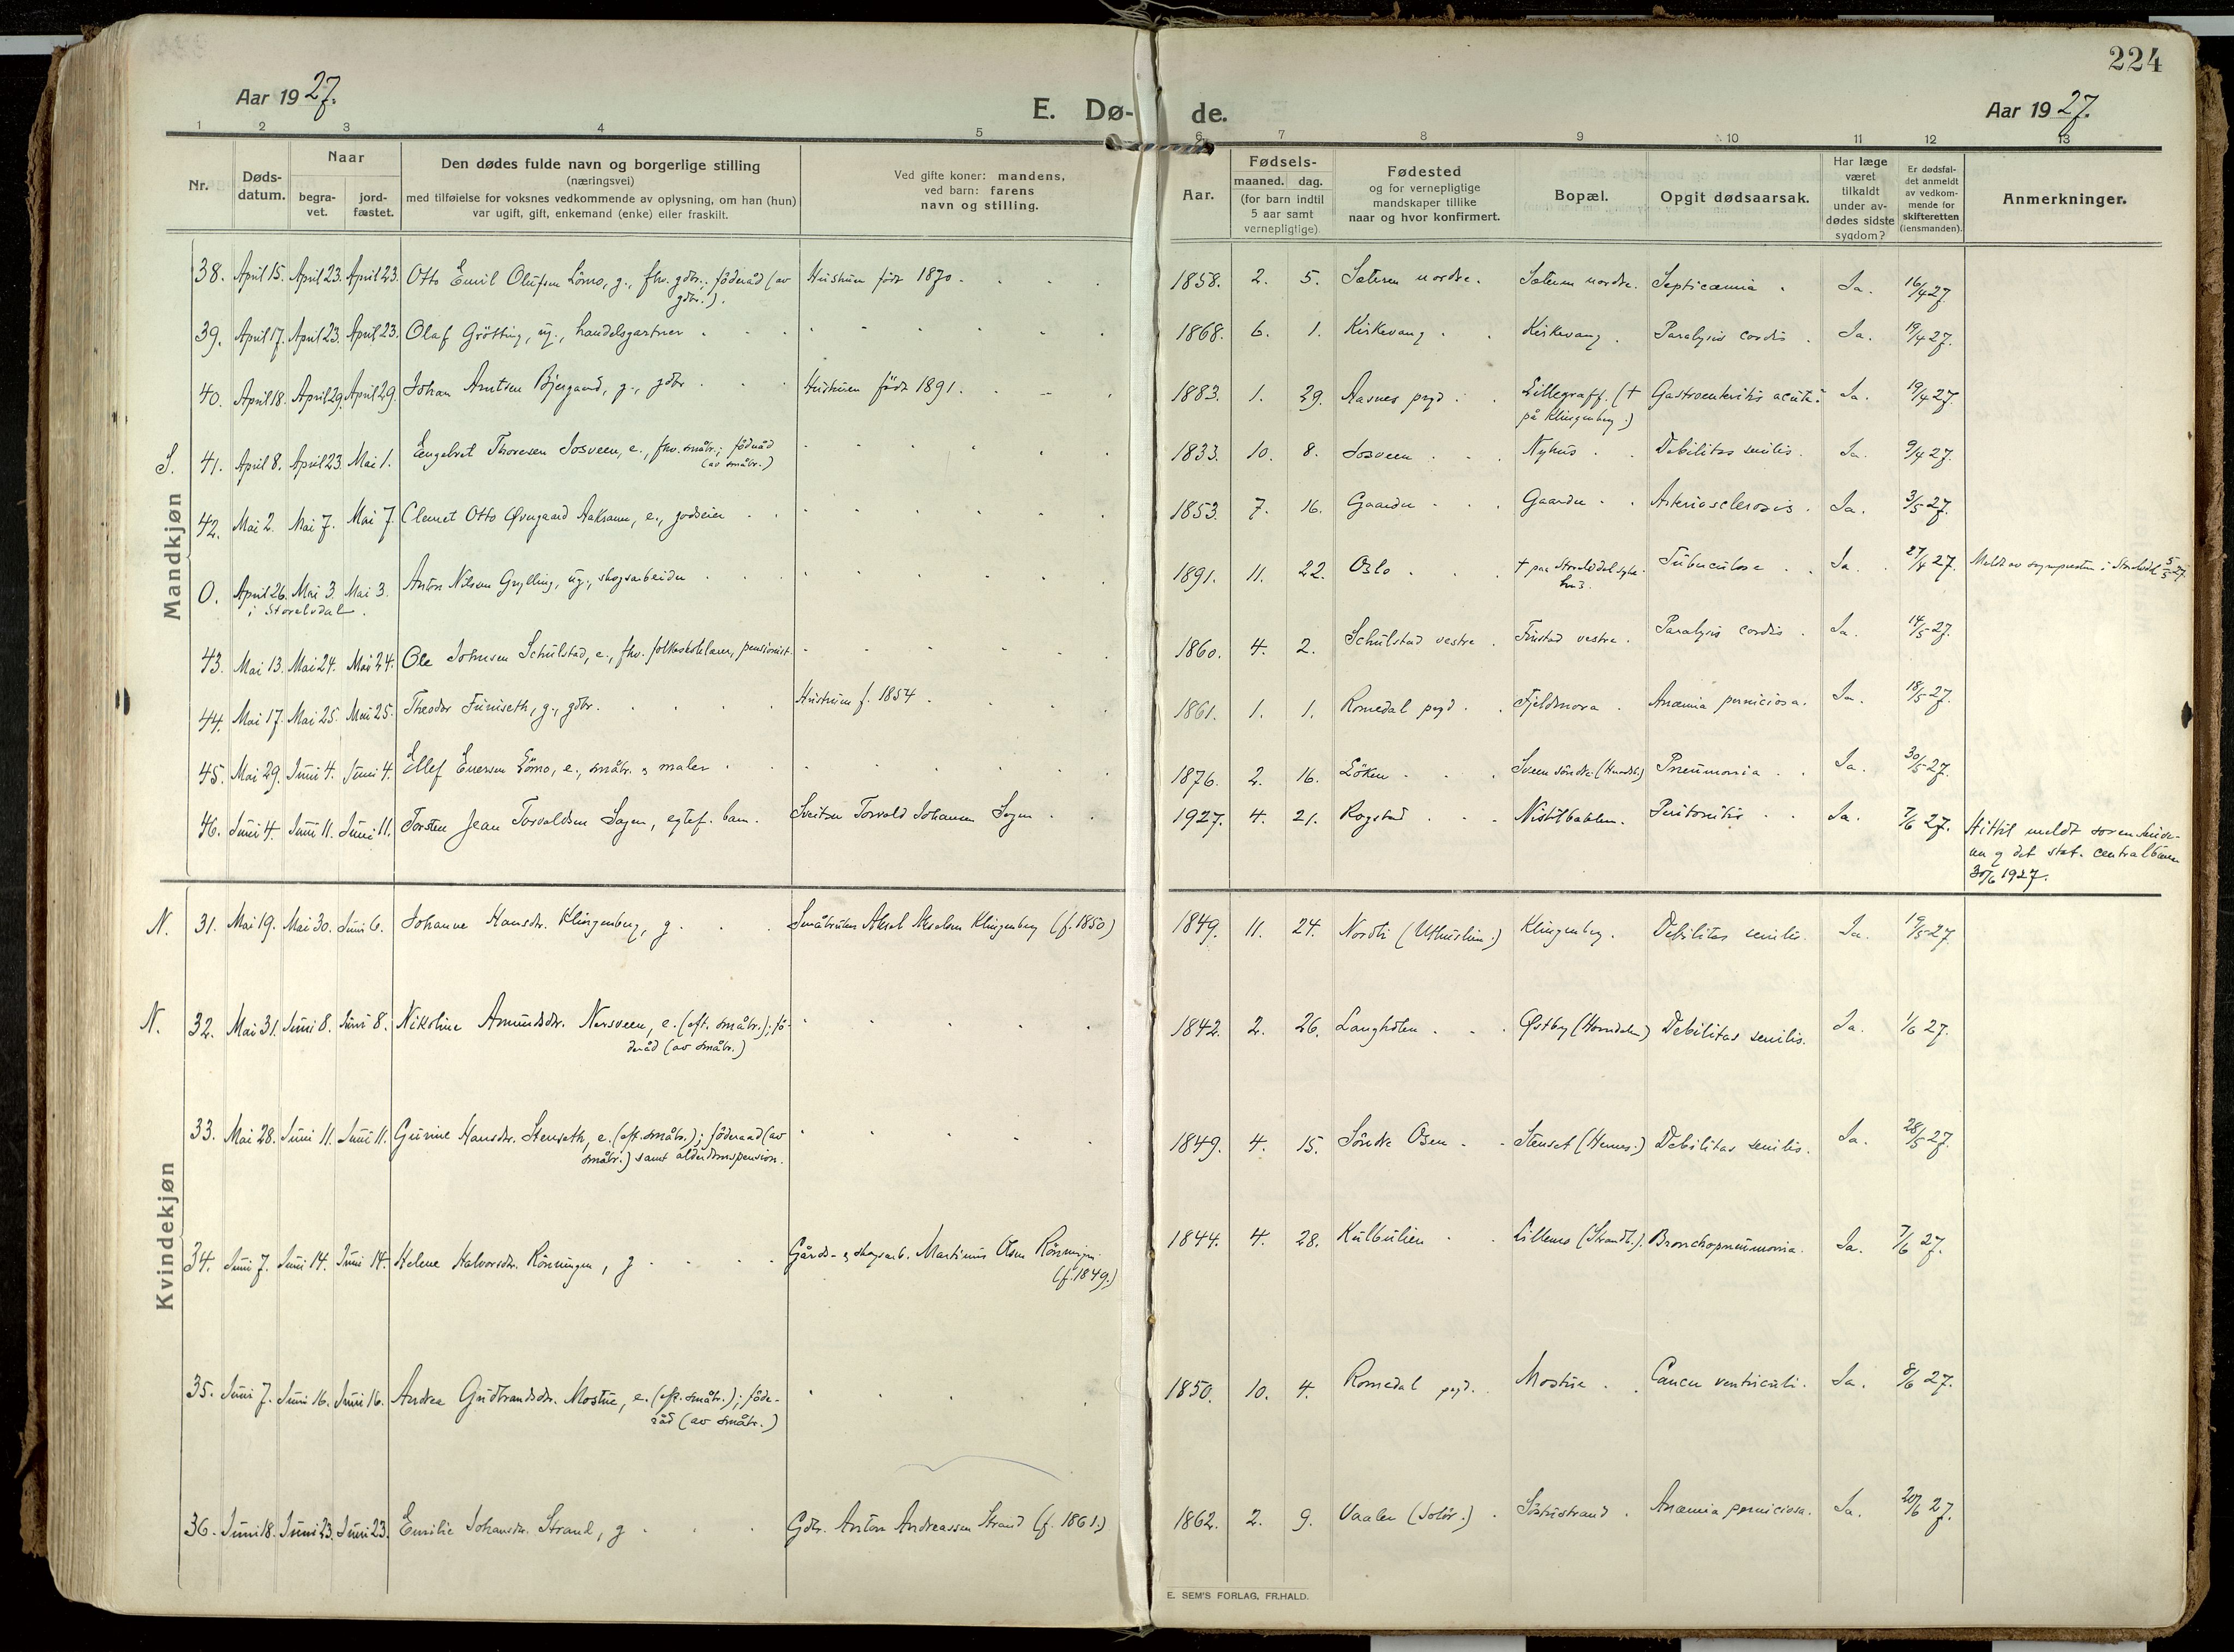 224
Aar 1927.
E. Dø- de.
Aar 1927.
1 2 3 4 5 6 7 8 9 10 11 12 13
Nr.
Døds-
datum.
Naar
begra-
vet.
jord-
fæstet.
Den dødes fulde navn og borgerlige stilling
(næringsvei)
med tilføielse for voksnes vedkommende av oplysning, om han (hun)
var ugift, gift, enkemand (enke) eller fraskilt.
Ved gifte koner: mandens,
ved barn: farens
navn og stilling.
Aar.
Fødsels-
maaned. dag.
(for barn indtil
5 aar samt
vernepligtige).
Fødested
og for vernepligtige
mandskaper tillike
naar og hvor konfirmert.
Bopæl.
Opgit dødsaarsak.
Har læge
været
tilkaldt
under av-
dødes sidste
sygdom?
Er dødsfal-
det anmeldt
av vedkom-
mende for
skifteretten
(lensmanden).
Anmerkninger.
Mandkjøn
38. April 15. April 23. April 23. Otto Emil Olufsen Lömo, g., fhv. gdbr.; föderåd (av Hustruen född 1870. 1858. 2. 5. Sæteren nordre. Sæteren nordre. Septicæmia. Ja. 16/4 27
gdbr.).
39. April 17. April 23. April 23. Olaf Grötting, ug., handelsgartner 1868. 6. 1. Kirkevang. Kirkevang. Paralysis cordis. Ja. 19/4 27.
40. April 18. April 29. April 29. Johan Arntsen Bjergaard, g., gdbr. Hustruen född 1891. 1883. 1. 29. Aasnes pgd. Lillegraff. († Gastroenteritis acuta. Ja. 19/4 27.
på Klingenberg.)
S. 41. April 8. April 23. Mai 1. Engebret Thoresen Josveen, e., fhv. småbr.; föderåd 1833. 10. 8. Josveen. Nyhus. Debilitas senilis. Ja. 9/4 27.
(av småbr.)
42. Mai 2. Mai 7. Mai 7. Clemet Otto Øvergaard Aakrann, e., godseier 1853. 7. 16. Gaarder. Gaarder. Arteriosclerosis. Ja. 3/5 27.
0. April 26. Mai 3. Mai 3. Anton Nilsen Grylling, ug., skogsarbeider 1891. 11. 22. Oslo. † paa Storelvdal syke- Tuberculose. Ja. 27/4 27. Meldt av sognepresten i Storelvdal 5/5 27.
i Storelvdal. hus.
43. Mai 13. Mai 24. Mai 24. Ole Johnsen Schulstad, e., fhv. folkeskolelærer, pensionist. 1860. 4. 2. Schulstad vestre. Finstad vestre. Paralysis cordis. Ja. 14/5 27.
44. Mai 17. Mai 25. Mai 25. Theodor Furuseth, g., gdbr. Hustruen f. 1854. 1861. 1. 1. Romedal pgd. Fjeldmora. Anæmia perniciosa. Ja. 18/5 27.
45. Mai 29. Juni 4. Juni 4. Ellef Enersen Lömo, e., småbr. & maler. 1876. 2. 16. Löken. Sveen söndre. Pneumonia. Ja. 30/5 27.
46. Juni 4. Juni 11. Juni 11. Torsten Jean Torvaldsen Sagen, egtef. barn. Sveitser Torvald Johansen Sagen 1927. 4. 21. Rogstad. Nistilbakken. Peritonitis. Ja. 7/6 27. Hittil meldt sorenskrive-
ren og det stat. centralbureau
30/6 1927.
Kvindekjøn
N. 31. Mai 19. Mai 30. Juni 6. Johanne Hansdr. Klingenberg, g. Småbruker Aksel Akselsen Klingenberg (f. 1850) 1849. 11. 24. Nordli (Uthuslien.) Klingenberg. Debilitas senilis. Ja. 19/5 27.
N. 32. Mai 31. Juni 8. Juni 8. Nikoline Amundsdr. Nersveen, e. (eft. småbr.); fö- 1842. 2. 26. Langholen. Østby (Horndalen) Debilitas senilis. Ja. 1/6 27.
deråd (av småbr.)
33. Mai 28. Juni 11. Juni 11. Gurine Hansdr. Stenseth, e. (eft. småbr.); föderaad (av 1849. 4. 15. Söndre Osen. Stenset (Hernes.) Debilitas senilis. Ja. 28/5 27.
småbr.) samt alderdomspension.
34. Juni 7. Juni 14. Juni 14. Helene Halvorsdr. Rönningen, g. Gårds- & skogsarb. Martinus Olsen Rönningen. 1844. 4. 28. Kulbulien. Lillemo (Strandb.). Bronchopneumonia. Ja. 7/6 27.
(f. 1849.)
35. Juni 7. Juni 16. Juni 16. Andrea Gudbrandsdr. Mostue, e. (eft. småbr.); föde- 1850. 10. 4. Romedal pgd. Mostue. Cancer ventriculi. Ja. 8/6 27.
råd (av småbr.)
36. Juni 18. Juni 23. Juni 23. Emilie Johansdr. Strand, g. Gdbr. Anton Andreassen Strand (f. 1861.) 1862. 2. 9. Vaaler (Solör.). Söstustrand. Anæmia perniciosa. Ja. 20/6 27.
E. SEM'S FORLAG, FR.HALD.